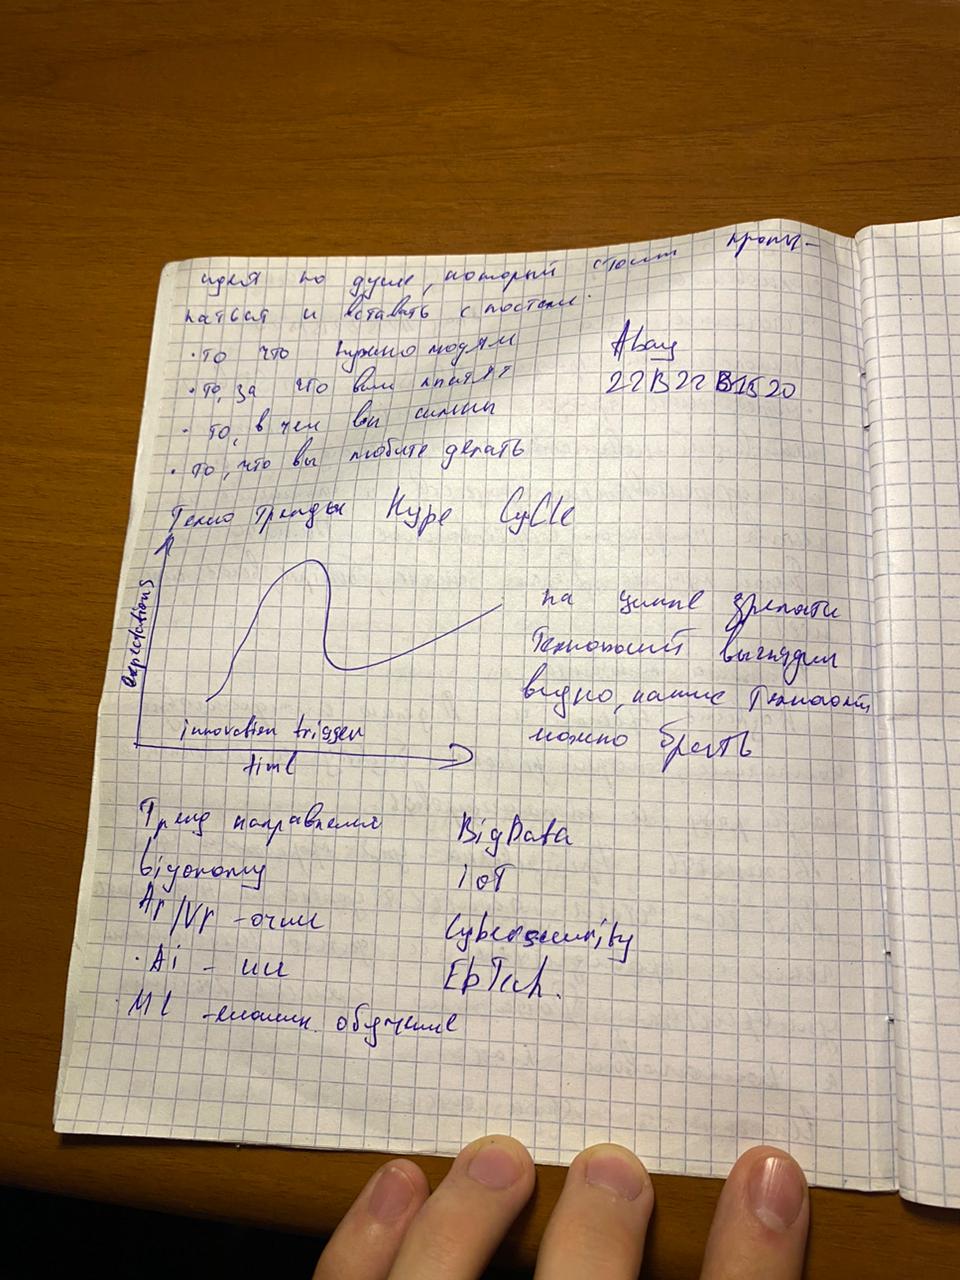 идея по душе, который стоит просы-
паться и вставать с постели.
· то что нужно людям
· то, за что вам платят
· то, в чем вы сильны
· то, что вы любите делать
Abay
22B22B1520
Техно тренды Hype CyCle
expectations
innovation trigger
time
на цикле зрелости
Технологий выглядим
видно, какие Технологии
можно брать
Тренд направления
Ar/Vr - очки
· Ai - ии
· ML - машин. обучение
BigData
ioT
Cybersecurity
EdTech.